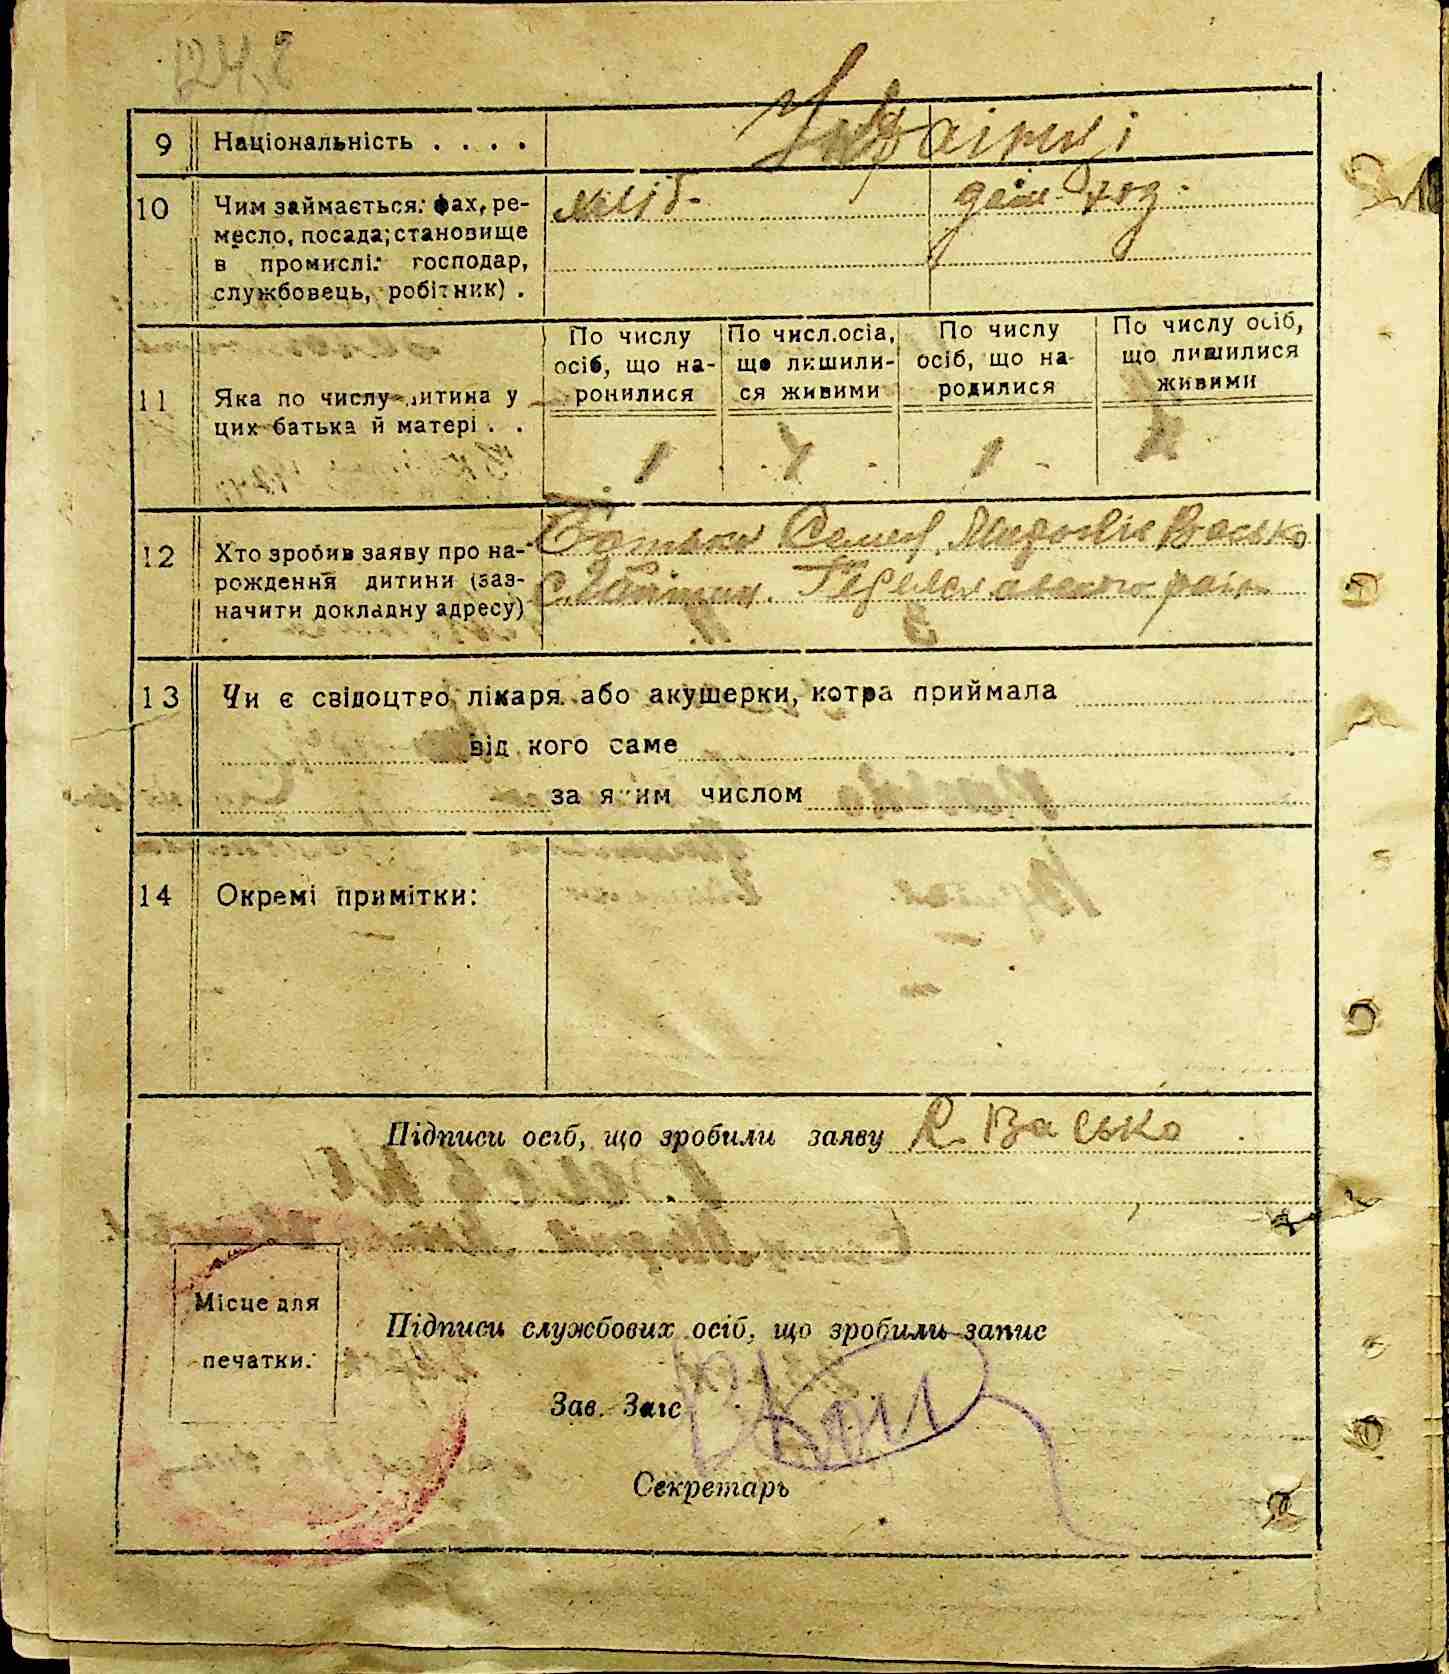 9 Національність . . . . Українці
10 Чим займається: фах, ре-
месло, посада; становище
в промислі: господар,
службовець, робітник) .
хліб. дом. хоз.
11 Яка по числу дитина у
цих батька й матері . .
По числу
осіб, що на-
ронилися
По числ.осіа,
що лишили-
ся живими
По числу
осіб, що на-
родилися
По числу осіб,
що лишилися
живими
1 1 1
12 Хто зробив заяву про на-
рождення дитини (заз-
начити докладну адресу)
Батьки Семен Васько
13 Чи є свідоцтво лікаря або акушерки, котра приймала
від кого саме
за яким числом
14 Окремі примітки:
Підписи осіб, що зробили заяву С. Васько
Місце для
печатки.
Підписи службових осіб, що зробили запис
Зав. Загс
Секретарь